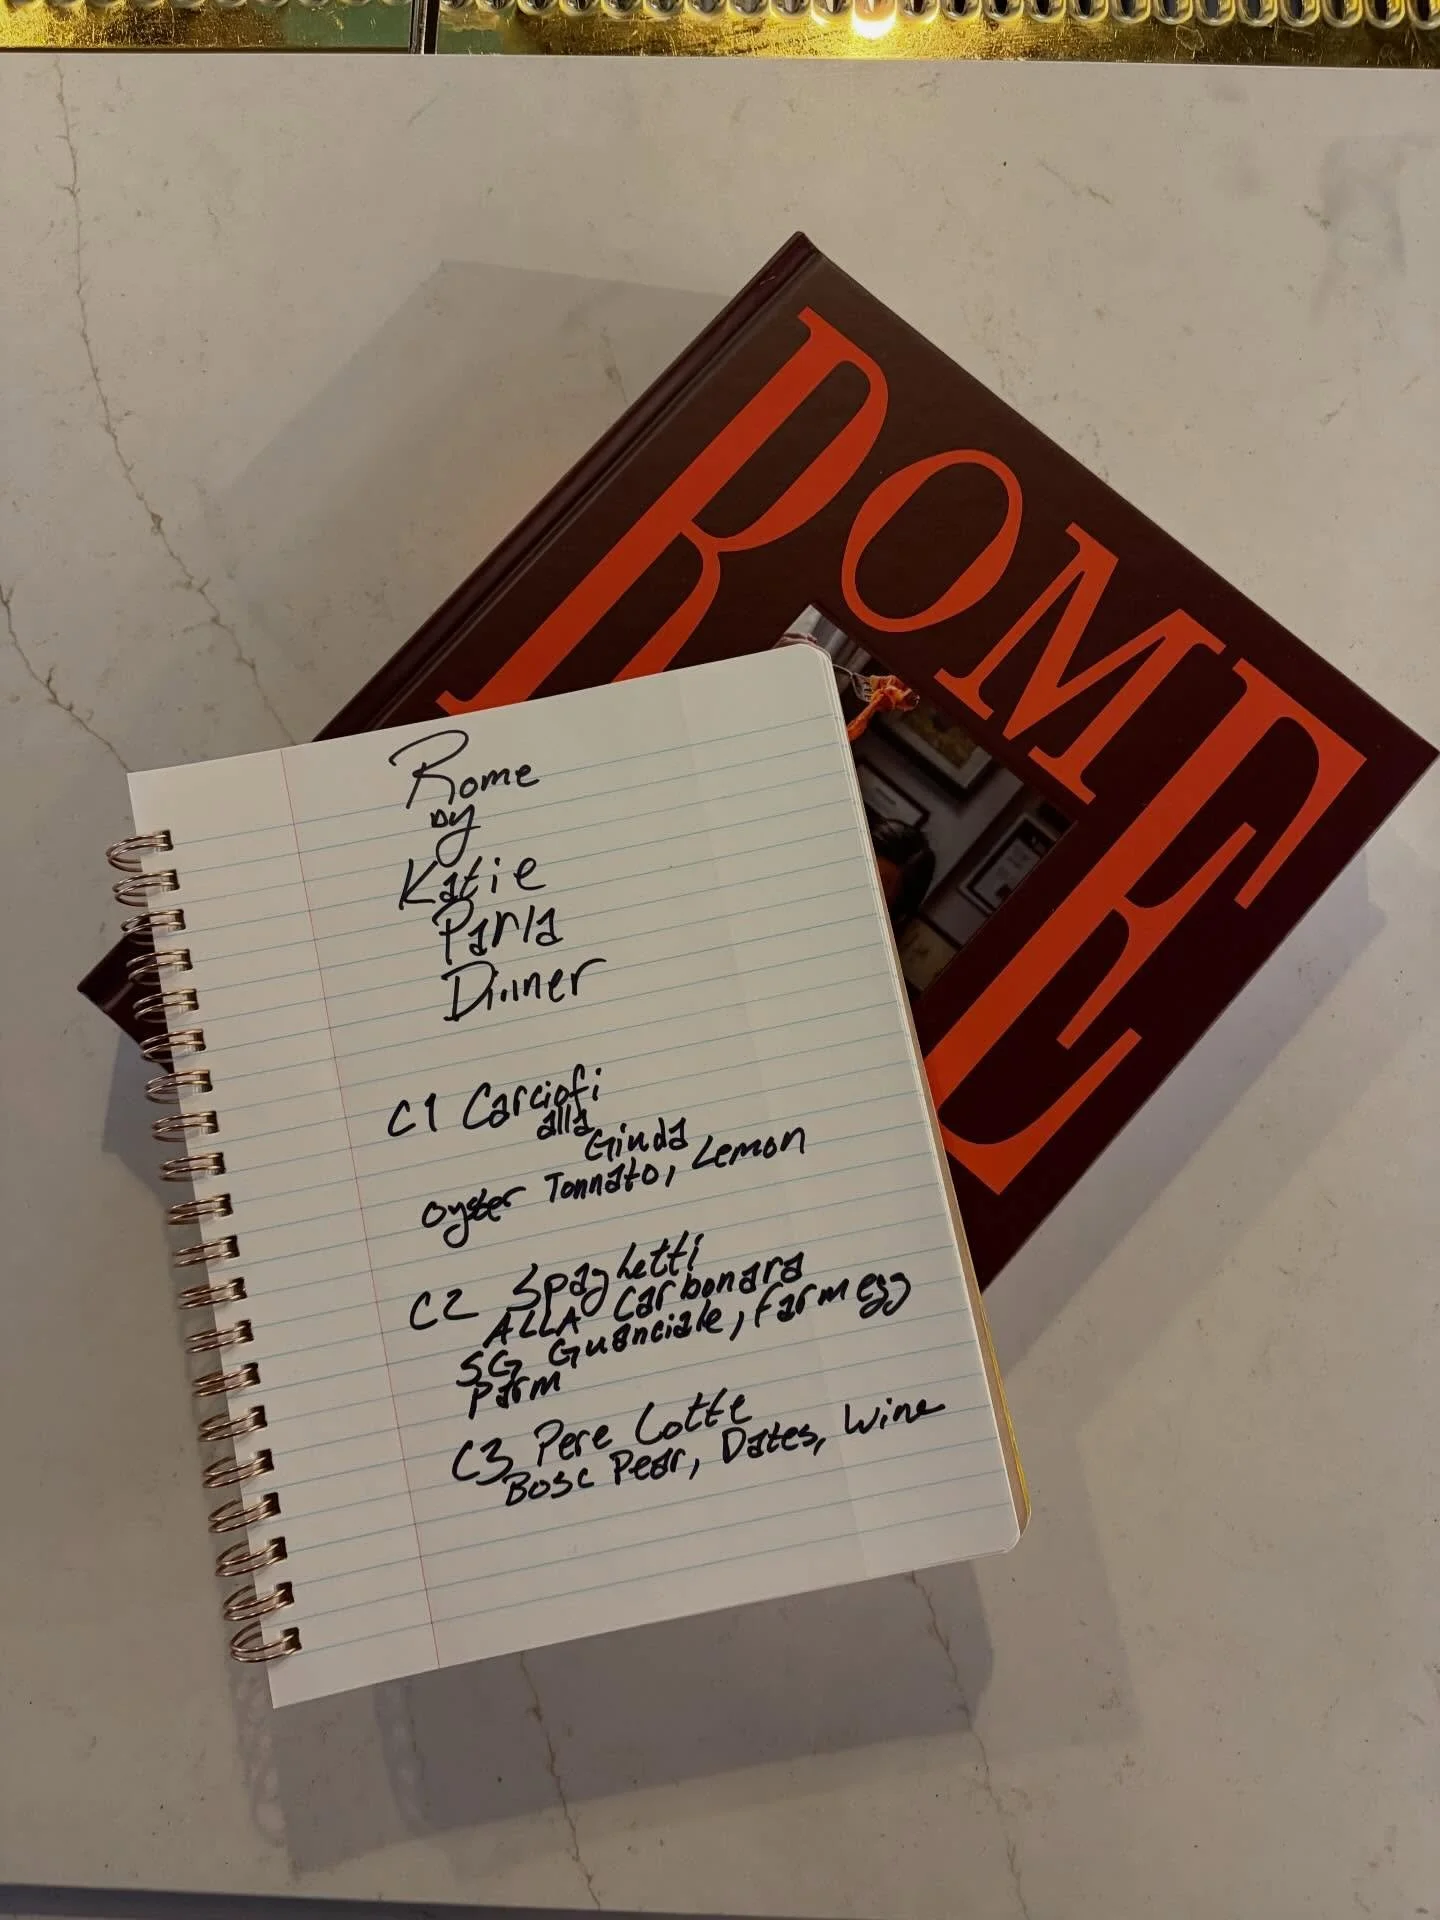 ROME
Rome
by
Katie
Parla
Dinner
C1 Carciofi
alla
Giuda
Oyster Tonnato, Lemon
C2 Spaghetti
ALLA Carbonara
SG Guanciale, Farm egg
Parm
C3 Pere Cotte
Bosc Pear, Dates, Wine